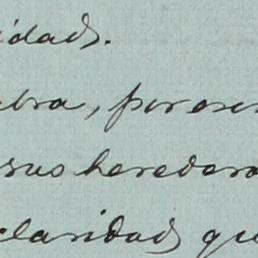 idad.
bra, por
sus heredero
claridad qu